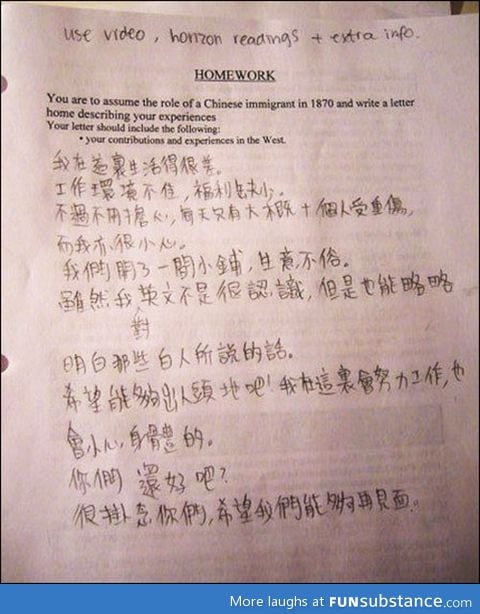 use video, horizon readings + extra info.
HOMEWORK
You are to assume the role of a Chinese immigrant in 1870 and write a letter
home describing your experiences
Your letter should include the following:
• your contributions and experiences in the West.
我在這裏生活得很差。
工作環境不佳，福利缺小。
不過不用擔心，每天只有大概十個人受重傷，
而我亦很小心。
我們開了一間小鋪，生意不俗。
雖然我對英文不是很認識，但是也能略略
明白那些白人所說的話。
希望能夠出人頭地吧！我在這裏會努力工作，也
會小心身體的。
你們還好吧？
很掛念你們，希望我們能夠再見面。
More laughs at FUNsubstance.com